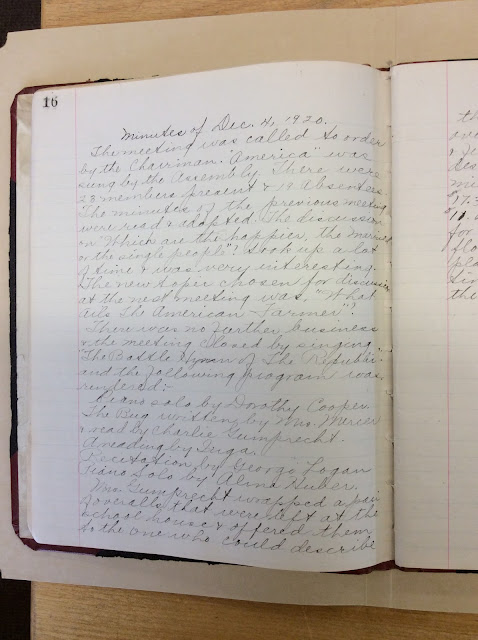 16
Minutes of Dec. 4, 1920.
The meeting was called to order
by the Chairman. "America" was
sung by the Assembly. There were
28 members present & 19 absentees.
The minutes of the previous meeting
were read & adopted. The discussion
on "Which are the happier, the married
or the single people"? took up a lot
of time & was very interesting.
The new topic chosen for discussion
at the next meeting was, "What
ails The American Farmer"?
There was no further business
& the meeting closed by singing
"The Battle Hymn of The Republic"
and the following program was
rendered:-
Piano solo by Dorothy Cooper.
The Bug written by Mrs. Mercer
& read by Charlie Gumprecht.
A reading by
Recitation by George Logan
Piano Solo by Alma Huber.
Mrs. Gumprecht wrapped a pair
of overalls that were left at the
school house & offered them
to the one who could describe
th
ove
& f
des
mi
17.3
11
for
flo
pla
Sin
the